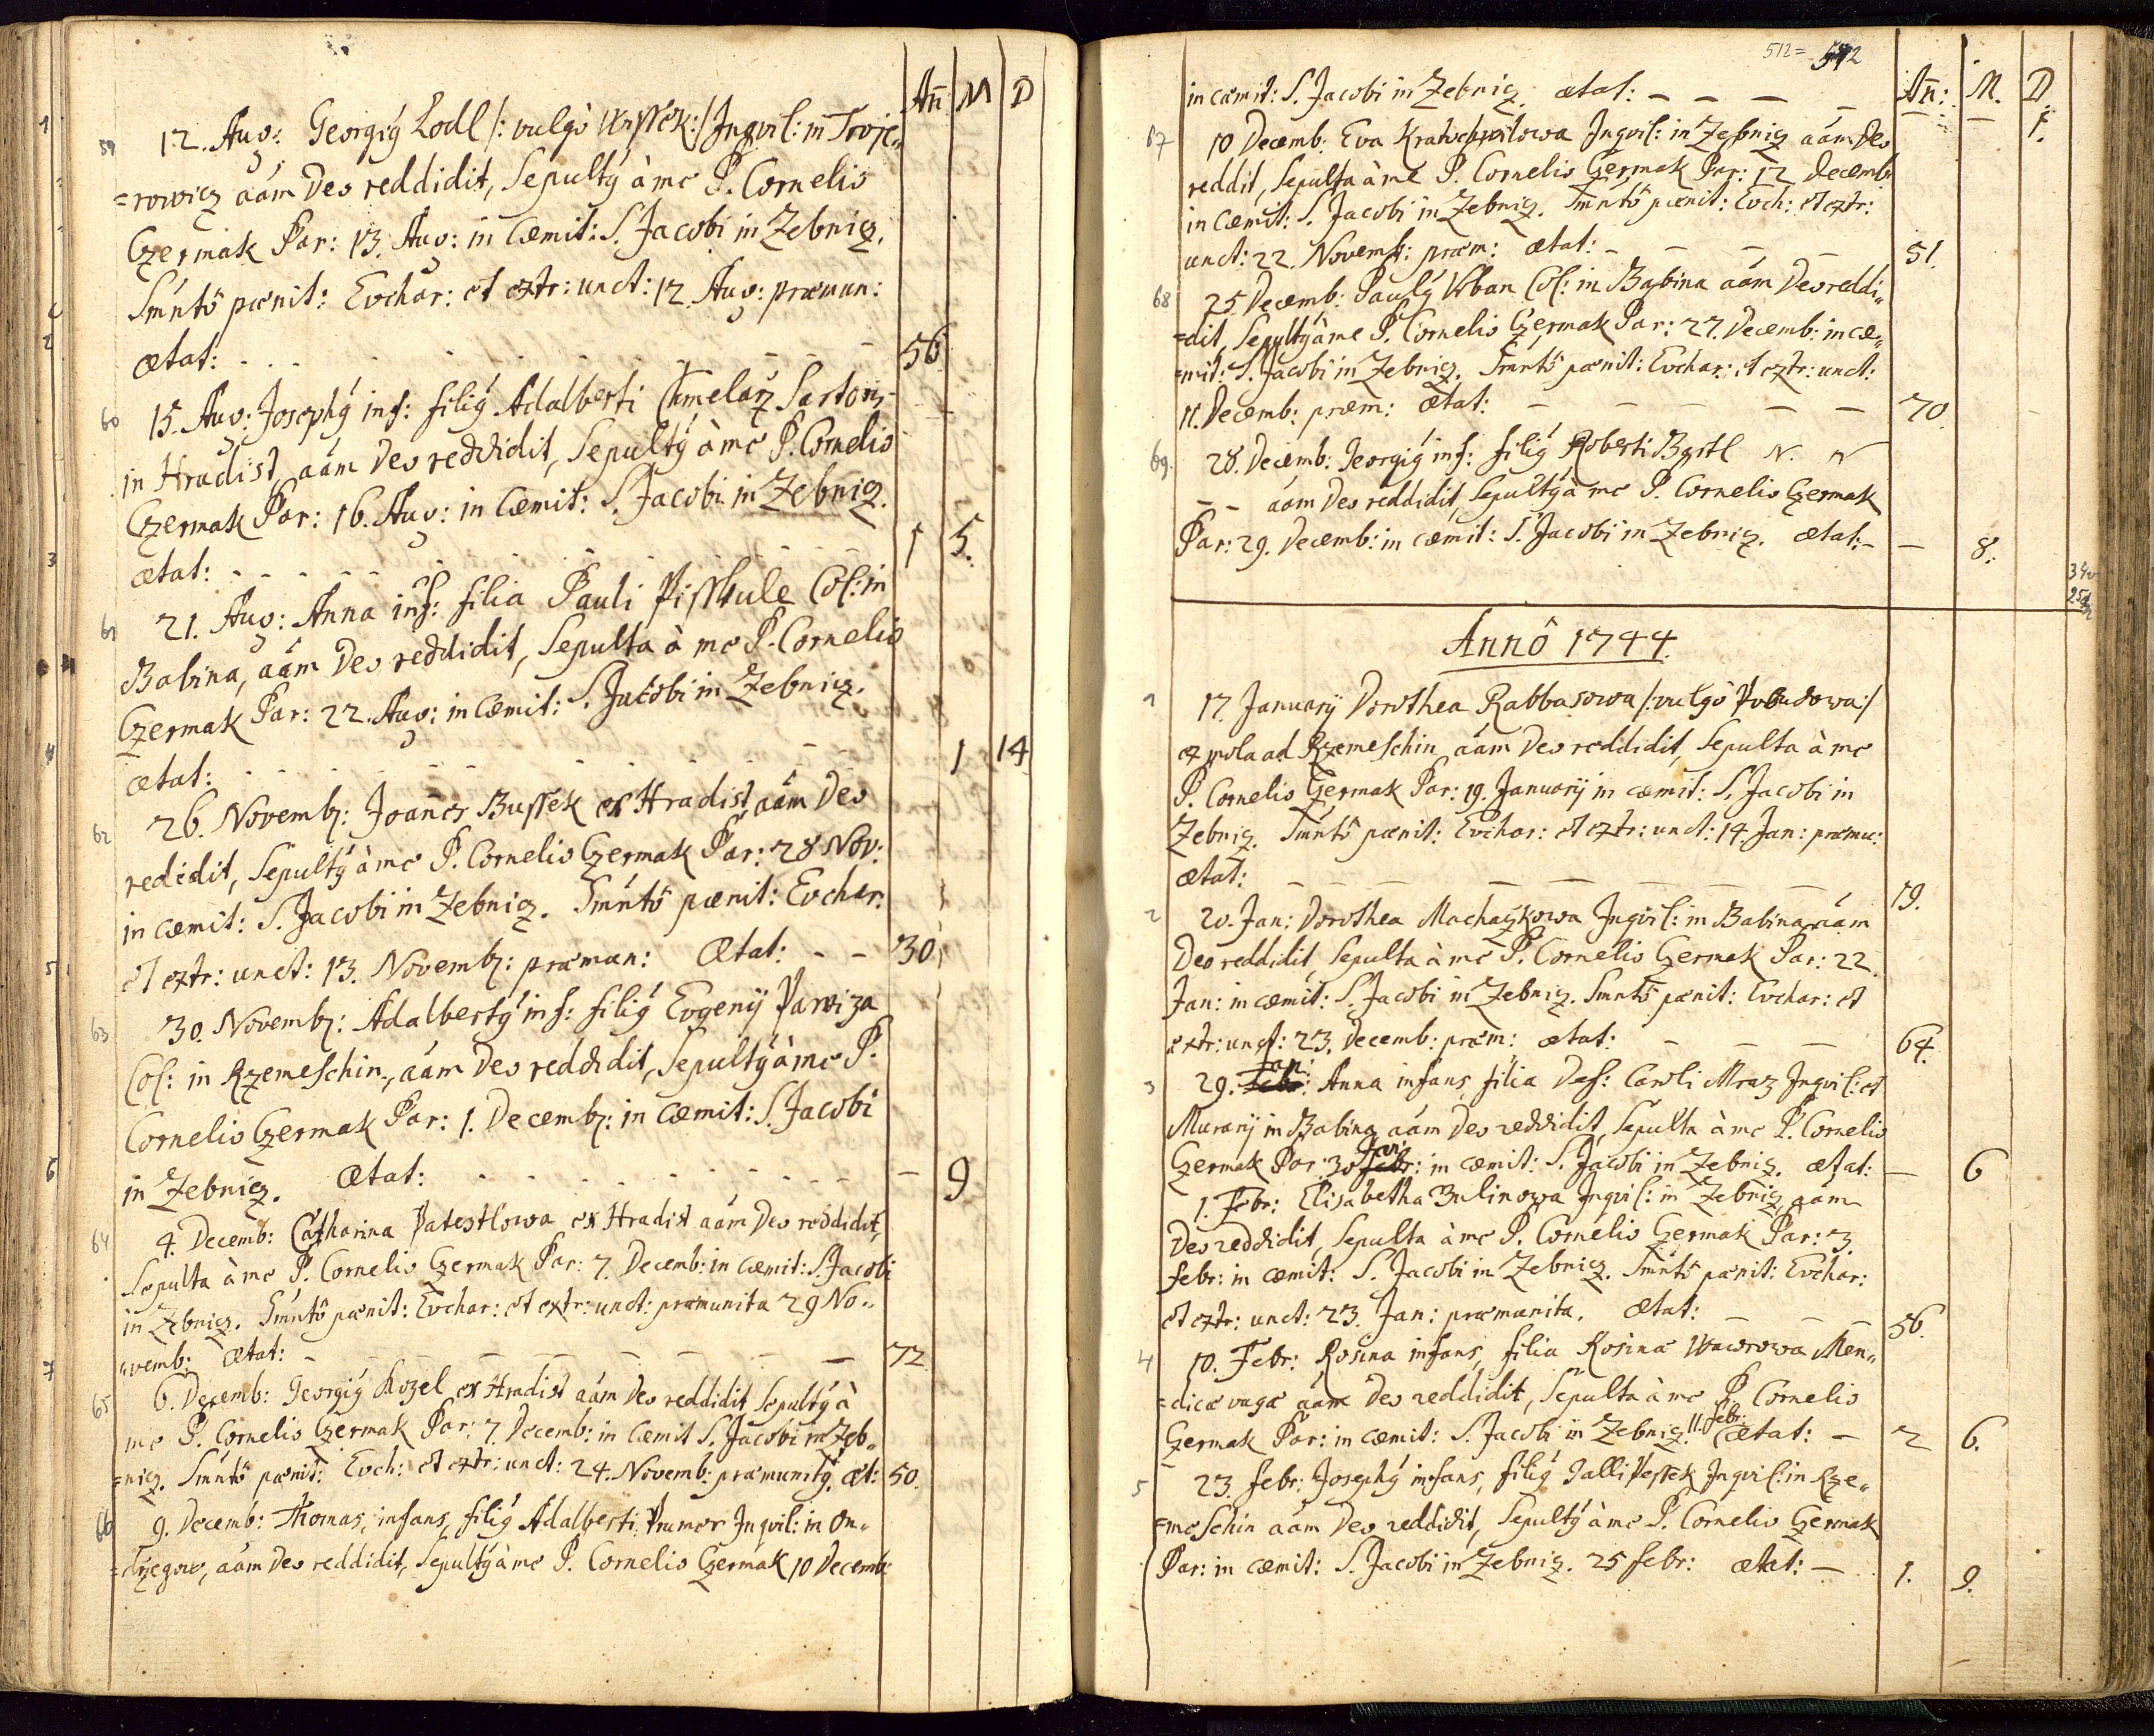 Añ M D
59 12. Aug: Georgiÿ Lodl /: vulgò Wussek:/ Inqvil: in Troje-
=rowicz aãm Deo reddidit, Sepultÿ à me P. Cornelio
Czermak Par: 13. Aug: in Cæmit: S. Jacobi in Zebnicz.
Smntô pænit: Evchar: et extr: unct: 12. Aug: præmun:
ætat: - - - 56
60 15. Aug: Josephÿ inf: filiÿ Adalberti Chmelarz Sartoris
in Hradist, aãm Deo reddidit, Sepultÿ à me P. Cornelio
Czermak Par: 16. Aug: in Cæmit: S. Jacobi in Zebnicz.
ætat: - - - 1 5.
61 21. Aug: Anna inf: filia Pauli Pisskule Col: in
Babina, aãm Deo reddidit, Sepulta à me P. Cornelio
Czermak Par: 22. Aug: in Cæmit: S. Jacobi in Zebnicz.
ætat: - - - 1 14
62 26. Novemb: Joañes Bussek ex Hradist aãm Deo
redidit, Sepultÿ à me P. Cornelio Czermak Par: 28 Nov:
in cæmit: S. Jacobi in Zebnicz. Smntô pænit: Evchar:
et extr: unct: 13. Novemb: præmun: Ætat: - - 30
63 30. Novemb: Adalbertÿ inf: filiÿ Evgenÿ Parviza
Col: in Rzemeschin, aãm Deo reddidit, Sepultÿ à me P.
Cornelio Czermak Par: 1. Decemb: in Cæmit: S. Jacobi
in Zebnicz. Ætat: - - - 9
64 4. Decemb: Catharina Patestlowa ex Hradist aãm Deo reddidit,
Sepulta à me P. Cornelio Czermak Par: 7. Decemb: in cæmit: S. Jacobi
in Zebnicz. Smntô pænit: Evchar: et extr: unct: præmunita 29 No-
=vemb: Ætat: - - - 72
65 6. Decemb: Georgiÿ Kozel ex Hradist aãm Deo reddidit Sepultÿ à
me P. Cornelio Czermak Par: 7. Decemb: in Cæmit S. Jacobi in Zeb-
=nicz. Smntô pænit: Evch: et extr: unct: 24. Novemb: præmunitÿ, æt: 50.
66 9. Decemb: Thomas, infans, filiÿ Adalberti Prumer Inqvil: in On-
=drzegow, aãm Deo reddidit, Sepultÿ à me P. Cornelio Czermak 10 Decemb:
512= 512
Añ: M. D:
in cæmit: S. Jacobi in Zebnicz. ætat: - - - 1.
67 10 Decemb: Eva Kratochwilowa Inqvil: in Zebnicz aãm Deo
reddit, Sepulta à me P. Cornelio Czermak Par: 12 Decemb:
in Cæmit: S. Jacobi in Zebnicz. Smntô pænit: Evch: et extr:
unct: 22. Novemb: præm: ætat: - - - 51.
68 25. Decemb: Paulÿ Vrban Col: in Babina aãm Deo reddi-
=dit, Sepultÿ à me P. Cornelio Czermak Par: 27. Decemb: in cæ-
=mit: S. Jacobi in Zebnicz. Smntô pænit: Evchar: et extr: unct:
11. Decemb: præm: Ætat: - - - 70.
69. 28. Decemb: Georgiÿ inf: filiÿ Roberti Bystl N. N
- - aãm Deo reddidit, Sepultÿ à me P. Cornelio Czermak
Par: 29. Decemb: in cæmit: S. Jacobi in Zebnicz. ætat: - - 8.
Annô 1744.
1 17. Januarÿ Dorothea Rabbasowa /: vulgò Pobudowa:/
ex mola ad Rzemeschin aãm Deo reddidit, Sepulta à me
P. Cornelio Czermak Par: 19. Januarÿ in cæmit: S. Jacobi in
Zebnicz. Smntô pænit: Evchar: et extr: unct: 14. Jan: præmu:
ætat: - - - 19.
2 20. Jan: Dorothea Machaczkowa Inqvil: in Babina aãm
Deo reddidit, Sepulta à me P. Cornelio Czermak Par: 22.
Jan: in cæmit: S. Jacobi in Zebnicz. Smntô pænit: Evchar: et
extr: unct: 23. Decemb: præm: ætat: - - - 64.
3 29. Jan: Anna infans, filia Def: Caroli Mraz Inqvil: et
Murarÿ in Babina aãm Deo reddidit, Sepulta à me P. Cornelio
Czermak Par: 30 Jan: in cæmit: S. Jacobi in Zebnicz. ætat: - 6
1. Febr: Elisabetha Bulinowa Inqvil: in Zebnicz, aãm
Deo reddidit, Sepulta à me P. Cornelio Czermak Par: 3.
febr: in cæmit: S. Jacobi in Zebnicz. Smntô pænit: Evchar:
et extr: unct: 23. Jan: præmunita. Ætat: - - - 56.
4 10. Febr: Rosina infans, filia Rosinæ Wawrowa Men-
=dicæ vagæ aãm Deo reddidit, Sepulta à me P. Cornelio
Czermak Par: in cæmit: S. Jacobi in Zebnicz. 11. febr: Ætat: - 2 6.
5 23. febr: Josephÿ infans, filiÿ Galli Pessek Inqvil: in Rze-
=meschin aãm Deo reddidit, Sepultÿ à me P. Cornelio Czermak
Par: in cæmit: S. Jacobi in Zebnicz. 25 febr: ætat: - 1. 9.